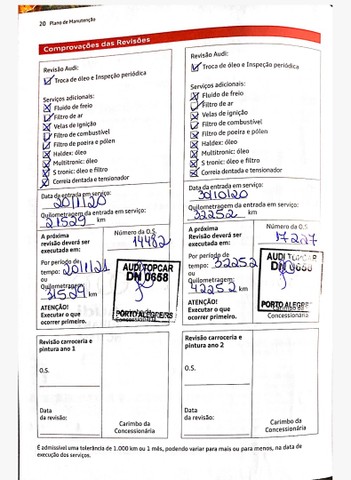 20 Plano de Manutenção
Comprovações das Revisões
Revisão Audi:
Troca de óleo e Inspeção periódica
Serviços adicionais:
Fluido de freio
Filtro de ar
Velas de ignição
Filtro de combustível
Filtro de poeira e pólen
Haldex: óleo
Multitronic: óleo
S tronic: óleo e filtro
Correia dentada e tensionador
Data da entrada em serviço:
20/11/20
Quilometragem da entrada em serviço:
21529 km
A próxima
revisão deverá ser
executada em:
Número da O.S.
14482
Por período de
tempo: 20/11/21
ou
Quilometragem:
31529 km
ATENÇÃO!
Executar o que
ocorrer primeiro.
AUDI TOPCAR
DN 0658
PORTO ALEGRE/RS
Concessionária
Revisão carroceria e
pintura ano 1
O.S.
Data
da revisão:
Carimbo da
Concessionária
Revisão Audi:
Troca de óleo e Inspeção periódica
Serviços adicionais:
Fluido de freio
Filtro de ar
Velas de ignição
Filtro de combustível
Filtro de poeira e pólen
Haldex: óleo
Multitronic: óleo
S tronic: óleo e filtro
Correia dentada e tensionador
Data da entrada em serviço:
Quilometragem da entrada em serviço:
32252 km
A próxima
revisão deverá ser
executada em:
Número da O.S.
Por período de
tempo: 32252
ou
Quilometragem:
42252 km
ATENÇÃO!
Executar o que
ocorrer primeiro.
AUDI TOPCAR
DN 0658
PORTO ALEGRE
Carimbo da
Concessionária
Revisão carroceria e
pintura ano 2
O.S.
Data
da revisão:
Carimbo da
Concessionária
É admissível uma tolerância de 1.000 km ou 1 mês, podendo variar para mais ou para menos, na data de
execução dos serviços.